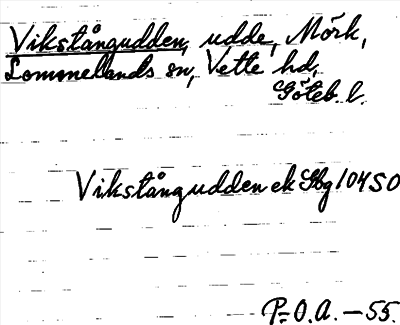 Vikstångudden, udde, Mörk,
Lommelands sn, Vette hd,
Göteb. l.
Vikstångudden ek Sbg 104 SO
P.-O.A. - 55.